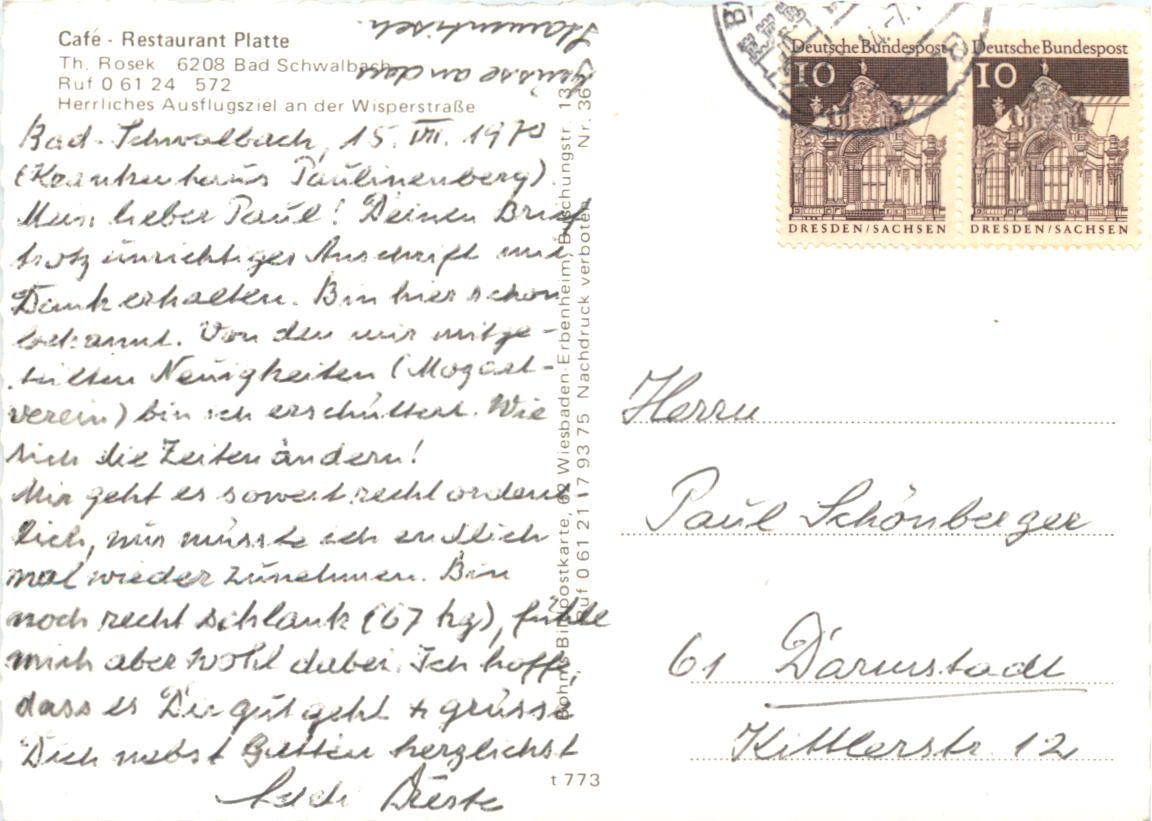 Café - Restaurant Platte
Th. Rosek 6208 Bad Schwalbach
Ruf 0 61 24 572
Herrliches Ausflugsziel an der Wisperstraße
Bad-Schwalbach, 15. VII. 1970
(Krankenhaus Paulinenberg)
Mein lieber Paul! Deinen Brief
trotz unrichtiger Anschrift mit
Dank erhalten. Bin hier schon
bekannt. Von den mir mitge-
teilten Neuigkeiten (Mozart-
verein) bin ich erschüttert. Wie
sich die Zeiten ändern!
Mir geht es soweit recht ordent-
lich, nur müsste ich endlich
mal wieder zunehmen. Bin
noch recht schlank (67 kg), fühle
mich aber wohl dabei. Ich hoffe,
dass es Dir gut geht + grüsse
Dich nebst Gattin herzlichst
Grüsse an den
Stammtisch
Nr. 36
Nachdruck verboten
Ruf 0 61 21 - 7 93 75
62 Wiesbaden-Erbenheim, Büschungstr. 13
t 773
Deutsche Bundespost
10
DRESDEN/SACHSEN
Deutsche Bundespost
10
DRESDEN/SACHSEN
Herrn
Paul Schönberger
61 Darmstadt
Kittlerstr. 12